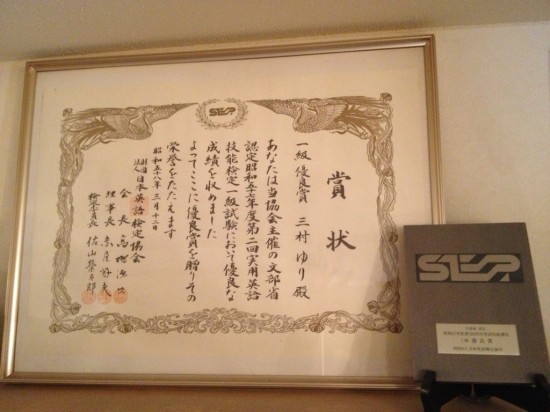 STEP
賞状
一級優良賞 三村ゆり殿
あなたは当協会主催の文部省
認定昭和五十七年度第二回実用英語
技能検定一級試験において優良な
成績を収めました
よってここに優良賞を贈りその
栄誉をたたえます
昭和五十八年三月十二日
財団法人 日本英語検定協会
会長 高橋源次
理事長
検定委員長 佐山栄太郎
STEP
1級 優良賞
財団法人 日本英語検定協会